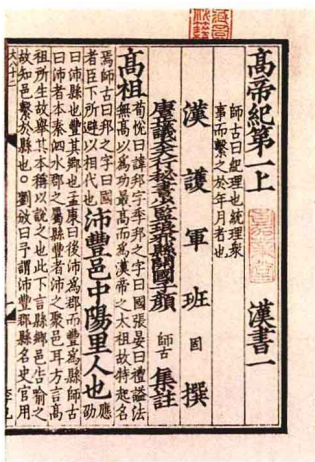 高帝紀第一上 漢書一
師古曰紀理也統理衆
事而繫之於年月者也
漢護軍班固撰
唐議大行秘書監琅邪縣開國子顏師古集註
高祖
荀悅曰諱邦字季邦之字曰國張晏曰禮謚法
無高以為功最高而為漢帝之太祖故特起名
焉師古曰邦之字曰國
者臣下所避以相代也
沛豐邑中陽里人也
應
劭
曰沛縣也豐其鄉也孟康曰後沛為郡而豐為縣師古
曰沛者本秦泗水郡之屬縣豐者沛之聚邑耳方言高
祖所生故舉其本稱以說之也此下言縣鄉邑告喻之
故知邑繫於縣也○劉攽曰予謂沛豐郡縣名史官用